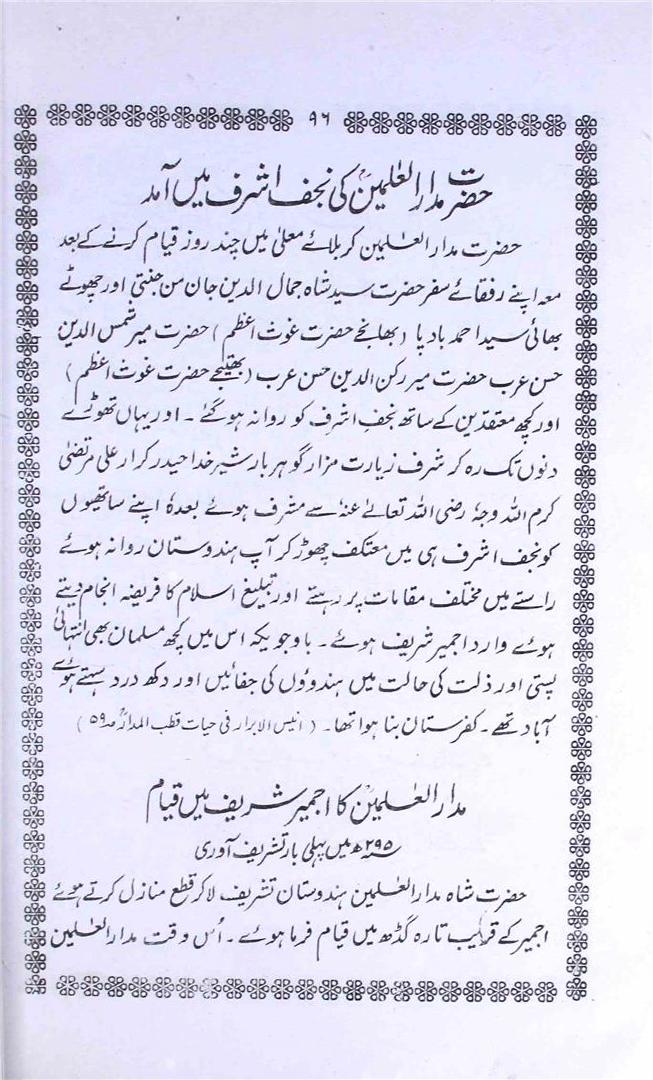 ۹۶
حضرت مدار العٰلمینؒ کی نجف اشرف میں آمد
حضرت مدار العٰلمین کربلائے معلیٰ میں چند روز قیام کرنے کے بعد
معہ اپنے رفقائے سفر حضرت سید شاہ جمال الدین جان من جنتی اور چھوٹے
بھائی سید احمد بادپا (بھانجے حضرت غوث اعظم) حضرت میر شمس الدین
حسن عرب حضرت میر رکن الدین حسن عرب (بھتیجے حضرت غوث اعظم)
اور کچھ معتقدین کے ساتھ نجف اشرف کو روانہ ہو گئے ۔ اور یہاں تھوڑے
دنوں تک رہ کر شرف زیارت مزار گوہر بار شیر خدا حیدر کرار علی مرتضیٰ
کرم اللہ وجہٗ رضی اللہ تعالےٰ عنہٗ سے مشرف ہوئے بعدہٗ اپنے ساتھیوں
کو نجف اشرف ہی میں معتکف چھوڑ کر آپ ہندوستان روانہ ہوئے
راستے میں مختلف مقامات پر رہتے اور تبلیغ اسلام کا فریضہ انجام دیتے
ہوئے وارد اجمیر شریف ہوئے ۔ باوجویکہ اس میں کچھ مسلمان بھی انتہائی
پستی اور ذلت کی حالت میں ہندوؤں کی جفائیں اور دکھ درد سہتے ہوئے
آباد تھے ۔ کفرستان بنا ہوا تھا ۔ (انیس الابرار فی حیات قطب المدارؒ صـ۵۹)
مدار العٰلمینؒ کا اجمیر شریف میں قیام
سنہ ۲۹۵ھ میں پہلی بار تشریف آوری
حضرت شاہ مدار العٰلمین ہندوستان تشریف لا کر قطع منازل کرتے ہوئے
اجمیر کے قریب تارہ گڈھ میں قیام فرما ہوئے ۔ اُس وقت مدار العٰلمین